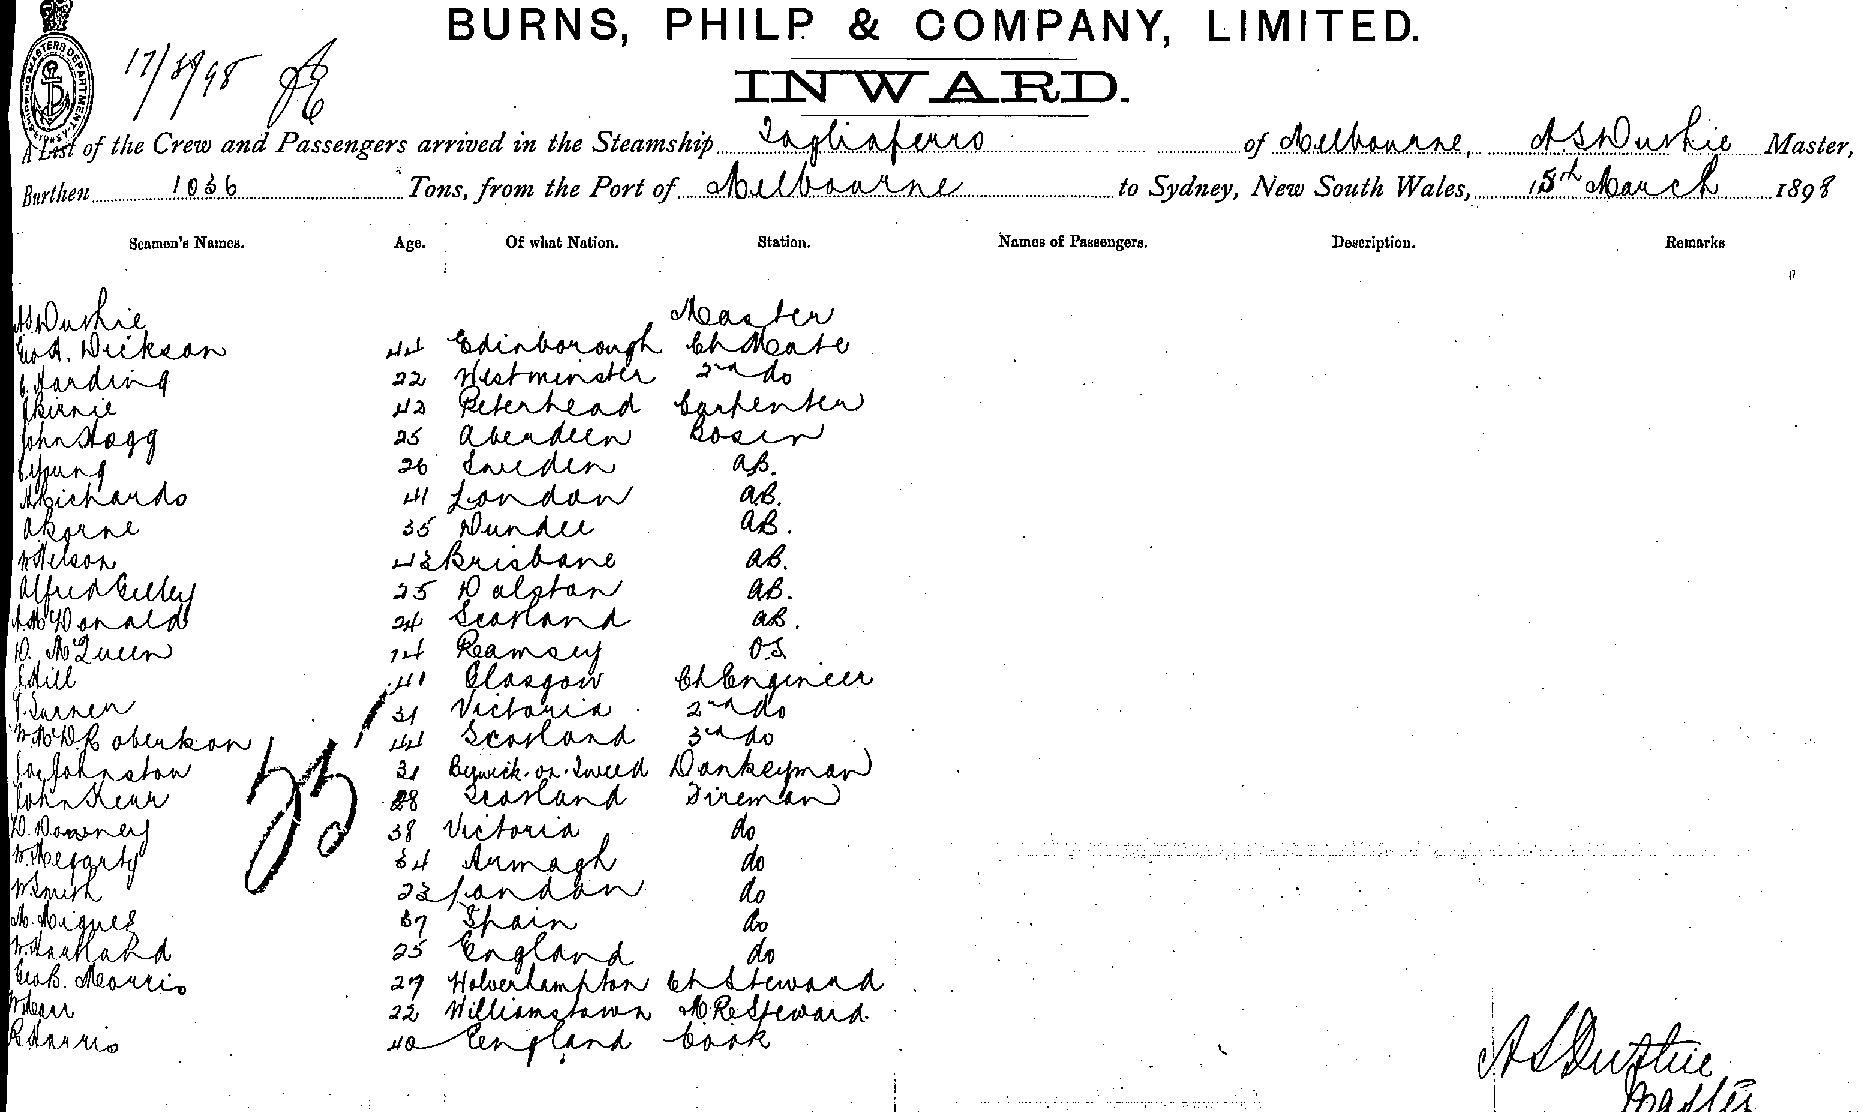 BURNS, PHILP & COMPANY, LIMITED.
INWARD.
A List of the Crew and Passengers arrived in the Steamship Tagliaferro of Melbourne, A S Duthie Master,
Burthen 1036 Tons, from the Port of Melbourne to Sydney, New South Wales, 15th March 1898
Seamen's Names. Age. Of what Nation. Station. Names of Passengers. Description. Remarks
AS Duthie Master
Geo A. Dickson 44 Edinborough Ch Mate
Harding 22 Westminster 2nd do
Birnie 42 Peterhead Carpenter
John Hogg 25 Aberdeen Bosen
Young 26 Sweden AB.
A Richards 41 London AB.
A Horne 35 Dundee AB.
Nelson 43 Brisbane AB.
Alfred Gilley 25 Dalston AB.
McDonald 24 Scotland AB.
D. McQueen Ramsey OS
Hill 41 Glasgow Ch Engineer
J. Turner 31 Victoria 2nd do
Robertson 44 Scotland 3rd do
Johnston 31 Berwick-on-Tweed Donkeyman
John Kerr 28 Scotland Fireman
D. Downey 38 Victoria do
W. Hegarty 34 Armagh do
W Smith 23 London do
M. Migues 37 Spain do
25 England do
Geo B. Morris 27 Wolverhampton Ch Steward
22 Williamstown M R Steward
R Harris 40 England Cook
A S Duthie
Master